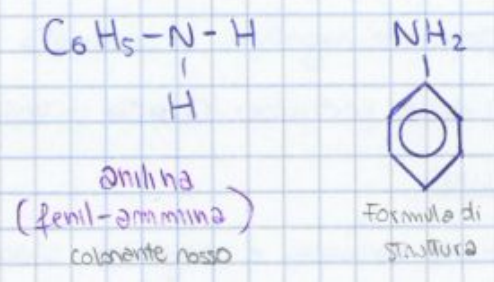 C6H5-N-H
H
NH2
anilina
(fenil-ammina)
colorante rosso
Formula di
struttura